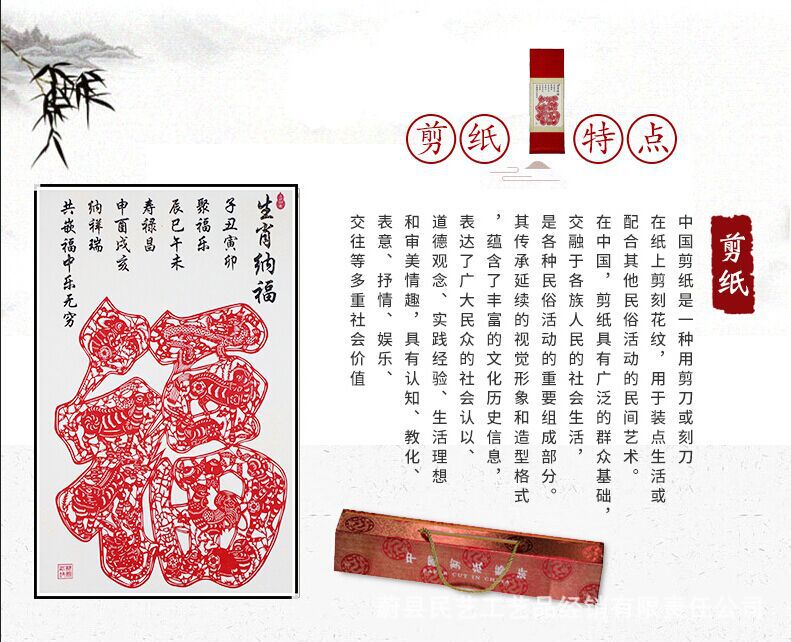 剪纸特点
剪纸
中国剪纸是一种用剪刀或刻刀
在纸上剪刻花纹，用于装点生活或
配合其他民俗活动的民间艺术。
在中国，剪纸具有广泛的群众基础，
交融于各族人民的社会生活，
是各种民俗活动的重要组成部分。
其传承延续的视觉形象和造型格式
，蕴含了丰富的文化历史信息，
表达了广大民众的社会认以、
道德观念、实践经验、生活理想
和审美情趣，具有认知、教化、
表意、抒情、娱乐、
交往等多重社会价值
生肖纳福
子丑寅卯
聚福乐
辰巳午未
寿禄昌
申酉戌亥
纳祥瑞
共嵌福中乐无穷
福
中国剪纸
CUT IN
蔚县民艺工艺品经销有限责任公司